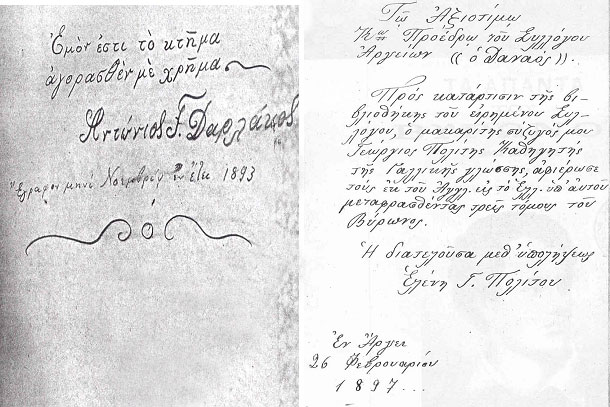 Ἐμὸν ἐστι τὸ κτῆμα
ἀγορασθὲν μὲ χρῆμα
Ἀντώνιος Γ. Δαρλάκος
Ἔγραφον μηνὶ Νοεμβρίῳ ἐν ἔτει 1893
Τῷ Ἀξιοτίμῳ
Κῳ Προέδρῳ τοῦ Συλλόγου
Ἀργείων (( ὁ Δαναός )).
Πρὸς κατάρτισιν τῆς βι-
βλιοθήκης τοῦ εἰρημένου Συλ-
λόγου, ὁ μακαρίτης σύζυγός μου
Γεώργιος Πολίτης Καθηγητὴς
τῆς Γαλλικῆς γλώσσης, ἀφιέρωσε
τοὺς ἐκ τοῦ Ἀγγλ. εἰς τὸ Ἑλλ. ὑπ' αὐτοῦ
μεταφρασθέντας τρεῖς τόμους τοῦ
Βύρωνος.
Ἡ διατελοῦσα μεθ' ὑπολήψεως
Ἑλένη Γ. Πολίτου
Ἐν Ἄργει
26 Φεβρουαρίου
1897...